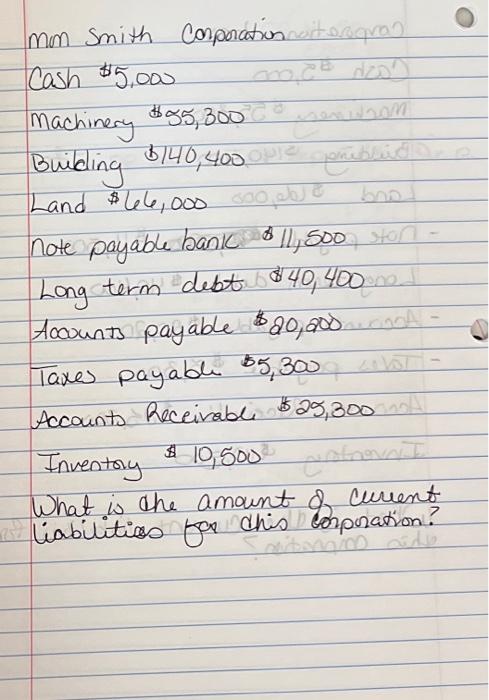 mm Smith Corporation
Cash $5,000
Machinery $55,300
Building $140,400
Land $66,000
Note payable bank $11,500
Long term debt $40,400
Accounts payable $20,200
Taxes payable $5,300
Accounts Receivable $25,300
Inventory $10,500
What is the amount of current
liabilities for this corporation?